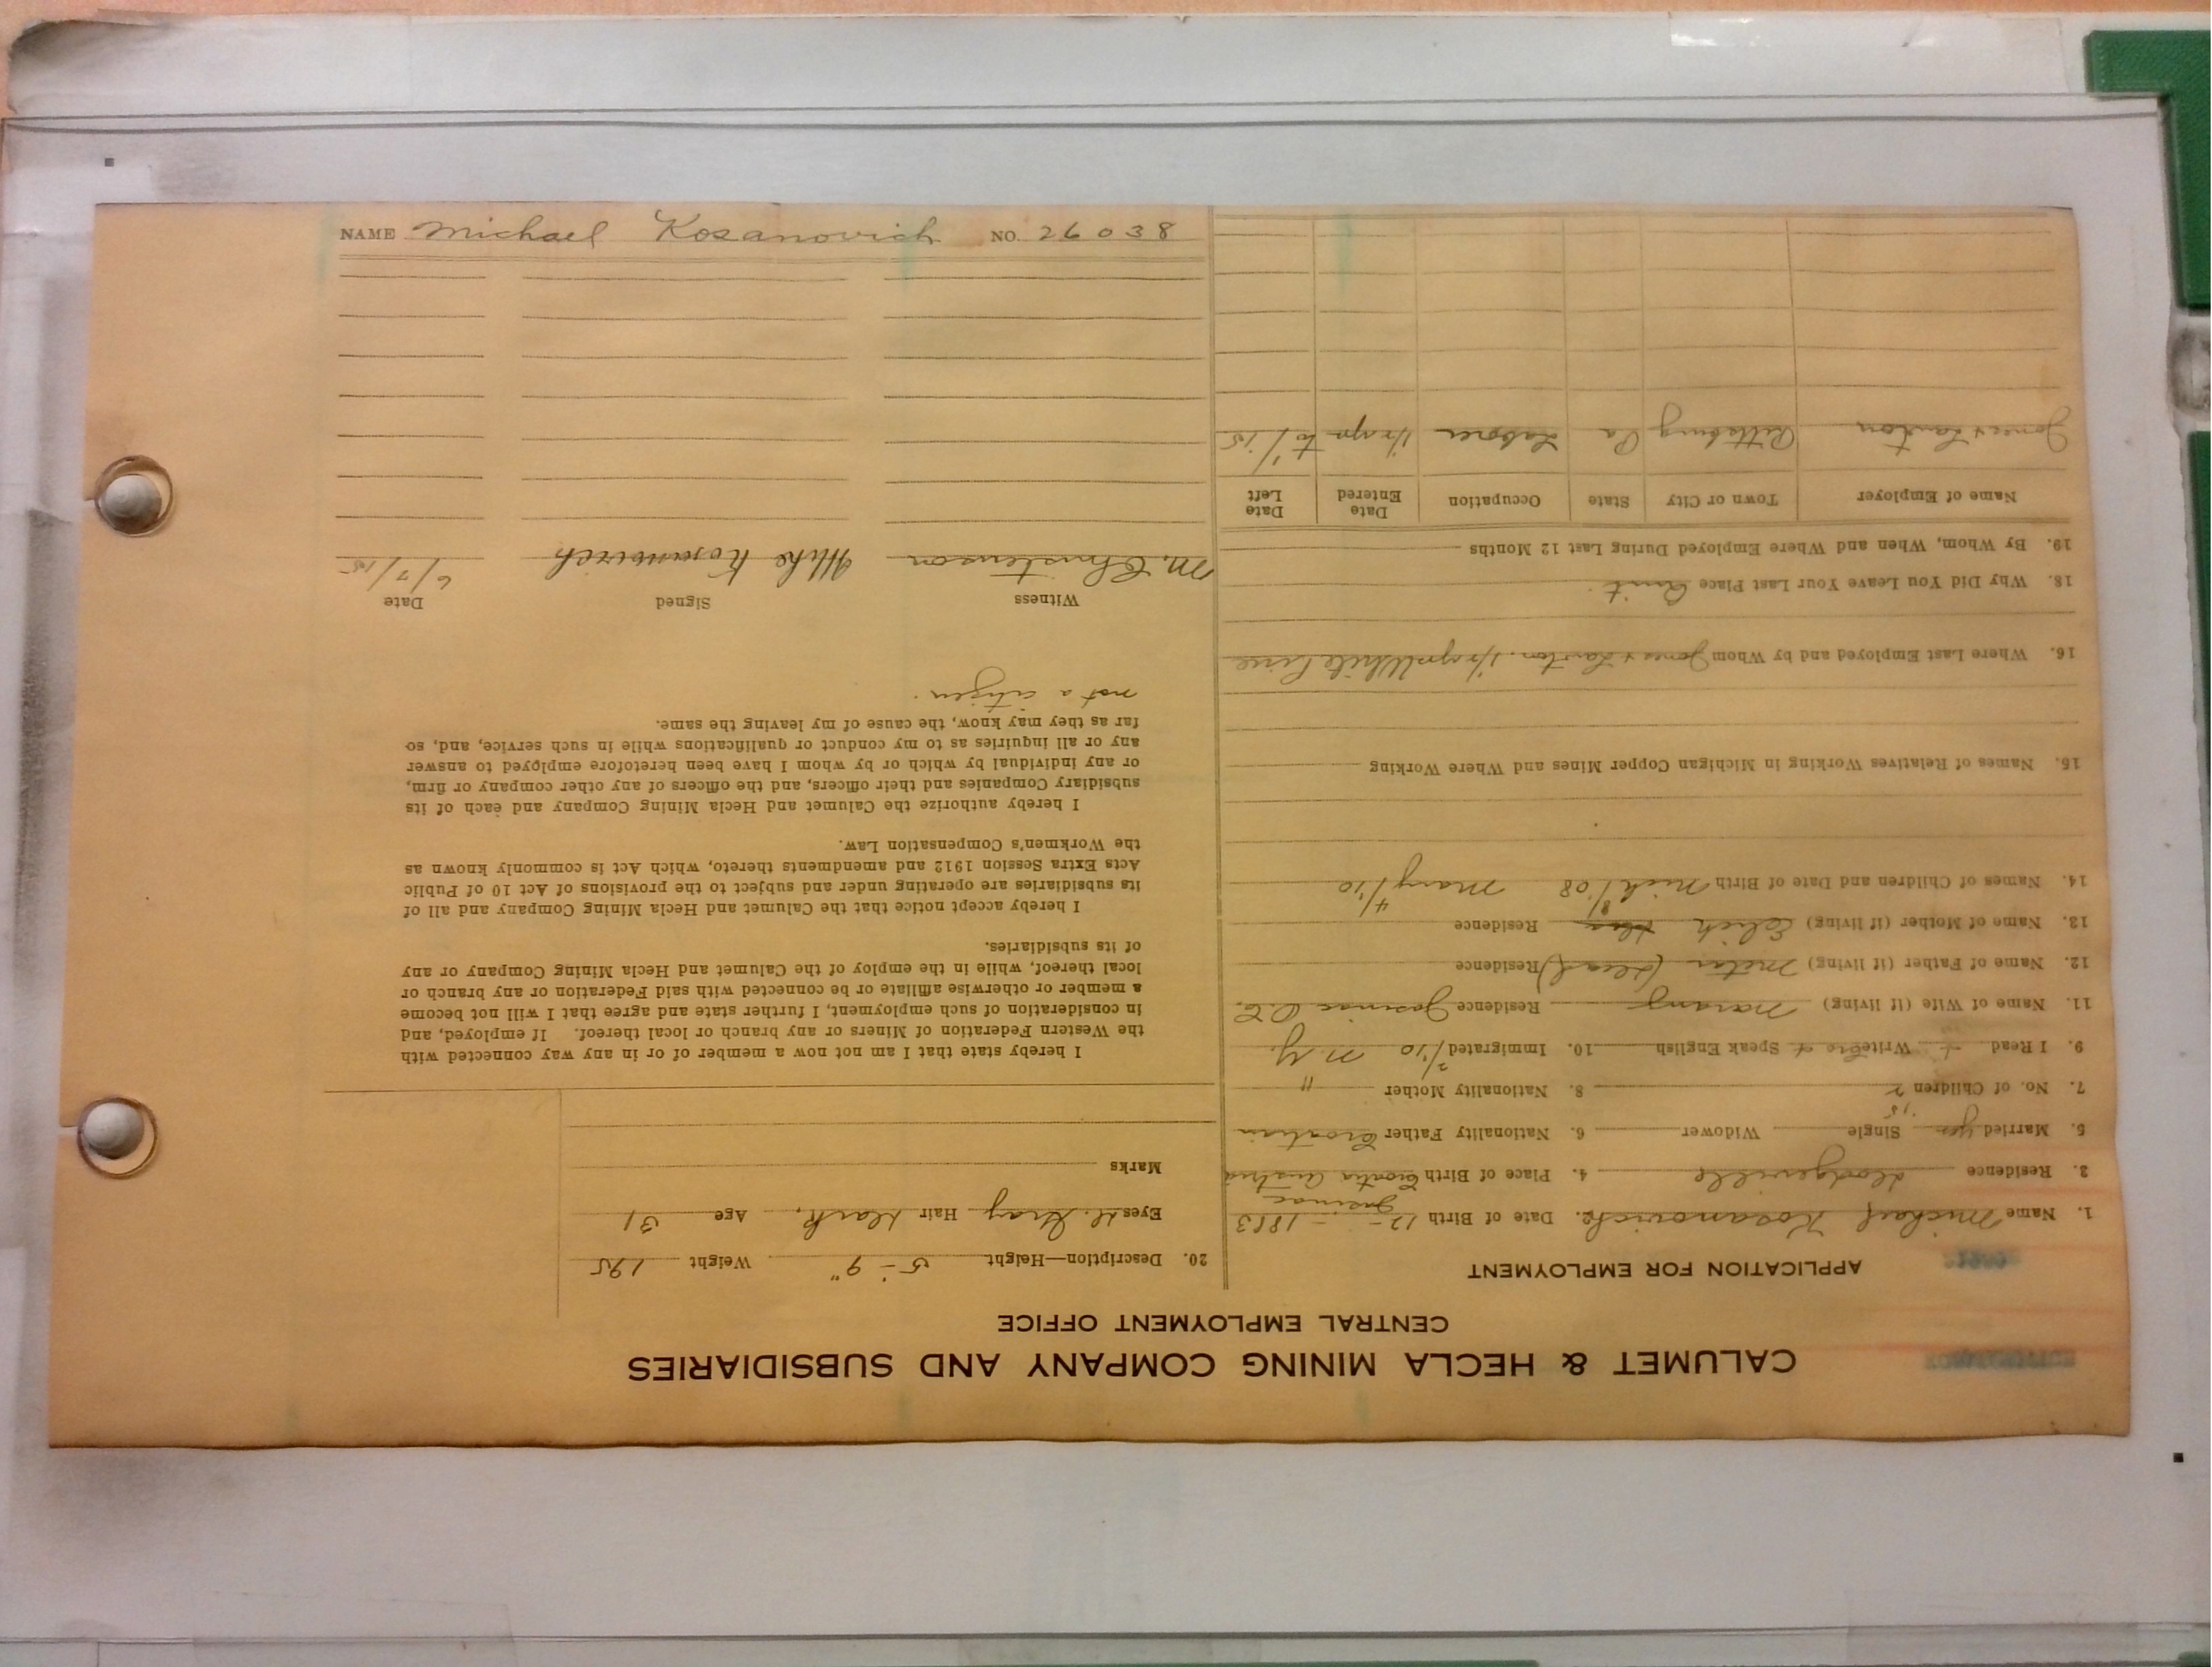 NAME Michael Kosanovich NO. 26038
CALUMET & HECLA MINING COMPANY AND SUBSIDIARIES
CENTRAL EMPLOYMENT OFFICE
APPLICATION FOR EMPLOYMENT
1. Name Michael Kosanovich 2. Date of Birth 12 - - 1883
3. Residence Dodgeville 4. Place of Birth Croatia Austria
Jasenac
5. Married yes Single Widower 6. Nationality Father Croatian
7. No. of Children 2 8. Nationality Mother "
9. I Read + Write Cro + Speak English 10. Immigrated 2/'10 N.Y.
11. Name of Wife (if living) Residence Jasenac
12. Name of Father (if living) (dead) Residence
13. Name of Mother (if living) Residence
14. Names of Children and Date of Birth Mich 8/08 Mary 4/10
15. Names of Relatives Working in Michigan Copper Mines and Where Working
16. Where Last Employed and by Whom Jones &
18. Why Did You Leave Your Last Place Quit.
19. By Whom, When and Where Employed During Last 12 Months
Name of Employer Town or City State Occupation Date Entered Date Left
Jones & Pittsburg Pa Laborer 1 yr ago to 1/15
20. Description—Height 5 - 9" Weight 195
Eyes D. Gray Hair Dark, Age 31
Marks
I hereby state that I am not now a member of or in any way connected with
the Western Federation of Miners or any branch or local thereof. If employed, and
in consideration of such employment, I further state and agree that I will not become
a member or otherwise affiliate or be connected with said Federation or any branch or
local thereof, while in the employ of the Calumet and Hecla Mining Company or any
of its subsidiaries.
I hereby accept notice that the Calumet and Hecla Mining Company and all of
its subsidiaries are operating under and subject to the provisions of Act 10 of Public
Acts Extra Session 1912 and amendments thereto, which Act is commonly known as
the Workmen's Compensation Law.
I hereby authorize the Calumet and Hecla Mining Company and each of its
subsidiary Companies and their officers, and the officers of any other company or firm,
or any individual by which or by whom I have been heretofore employed to answer
any or all inquiries as to my conduct or qualifications while in such service, and, so
far as they may know, the cause of my leaving the same.
not a citizen.
Witness Signed Date
M. Christenson Mike Kosanovich 6/7/15